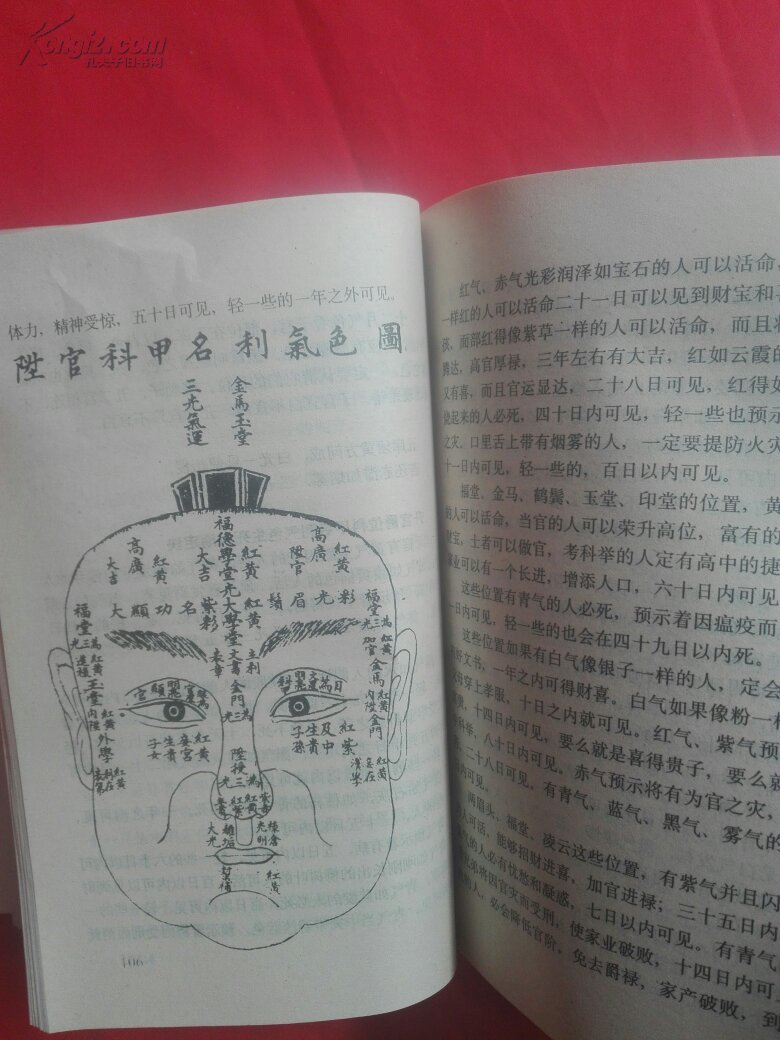 Kongfz.com
孔夫子旧书网
体力，精神受惊，五十日可见，轻一些的一年之外可见。
陞官科甲名利氣色圖
金馬玉堂
三光氣運
福德學堂
紅黃
大吉
陞官
高廣
紅黃
高廣
紅黃
大吉
光大學堂
紅黃
紫彩
名
功
顯
大
鬚
眉
光
彩
福堂
福堂
三光
紅黃
加官
金馬
紅黃
內陞
金門
玉堂
紅黃
外學
文書
金門
三光
陞授
子女
生貴
妾宮
紅黃
子孫
生貴
及中
紅紫
大光
光明
紅黃
106
红气、赤气光彩润泽如宝石的人可以活命，
一样红的人可以活命二十一日可以见到财宝和
孩，面部红得像紫草一样的人可以活命，而且将
腾达，高官厚禄，三年左右有大吉，红如云霞的
又有喜，而且官运显达，二十八日可见，红得如
烧起来的人必死，四十日内可见，轻一些也预示
之灾。口里舌上带有烟雾的人，一定要提防火灾
十一日内可见，轻一些的，百日以内可见。
福堂、金马、鹤鬓、玉堂、印堂的位置，黄
的人可以活命，当官的人可以荣升高位，富有的
财宝，士者可以做官，考科举的人定有高中的捷
家业可以有一个长进，增添人口，六十日内可见
这些位置有青气的人必死，预示着因瘟疫而
一日内可见，轻一些的也会在四十九日以内死。
这些位置如果有白气像银子一样的人，定会
有好文书，一年之内可得财喜。白气如果像粉一样
身穿上孝服，十日之内就可见。红气、紫气预
贵，十四日内可见，要么就是喜得贵子，要么就
科举，八十日内可见。赤气预示将有为官之灾，
，二十八日可见，有青气、蓝气、黑气、雾气的
日内可见。
两眉头、福堂、凌云这些位置，有紫气并且闪
人可活，能够招财进喜，加官进禄；三十五日内
气的人必有忧愁和疑惑，七日以内可见。有青气
兄弟将因官灾而受刑，使家业破败，十四日内可
的人，必会降低官阶，免去爵禄，家产破败，到